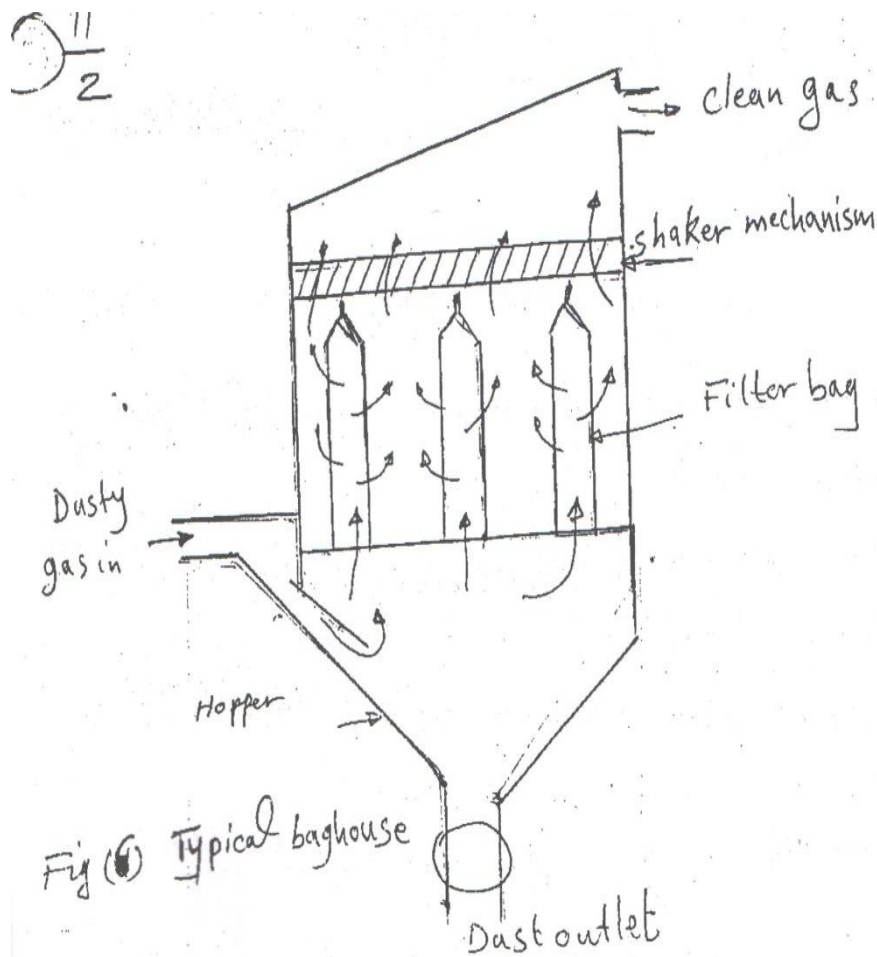 11
2
clean gas
shaker mechanism
Filter bag
Dusty
gas in
Hopper
Fig ( ) Typical baghouse
Dust outlet